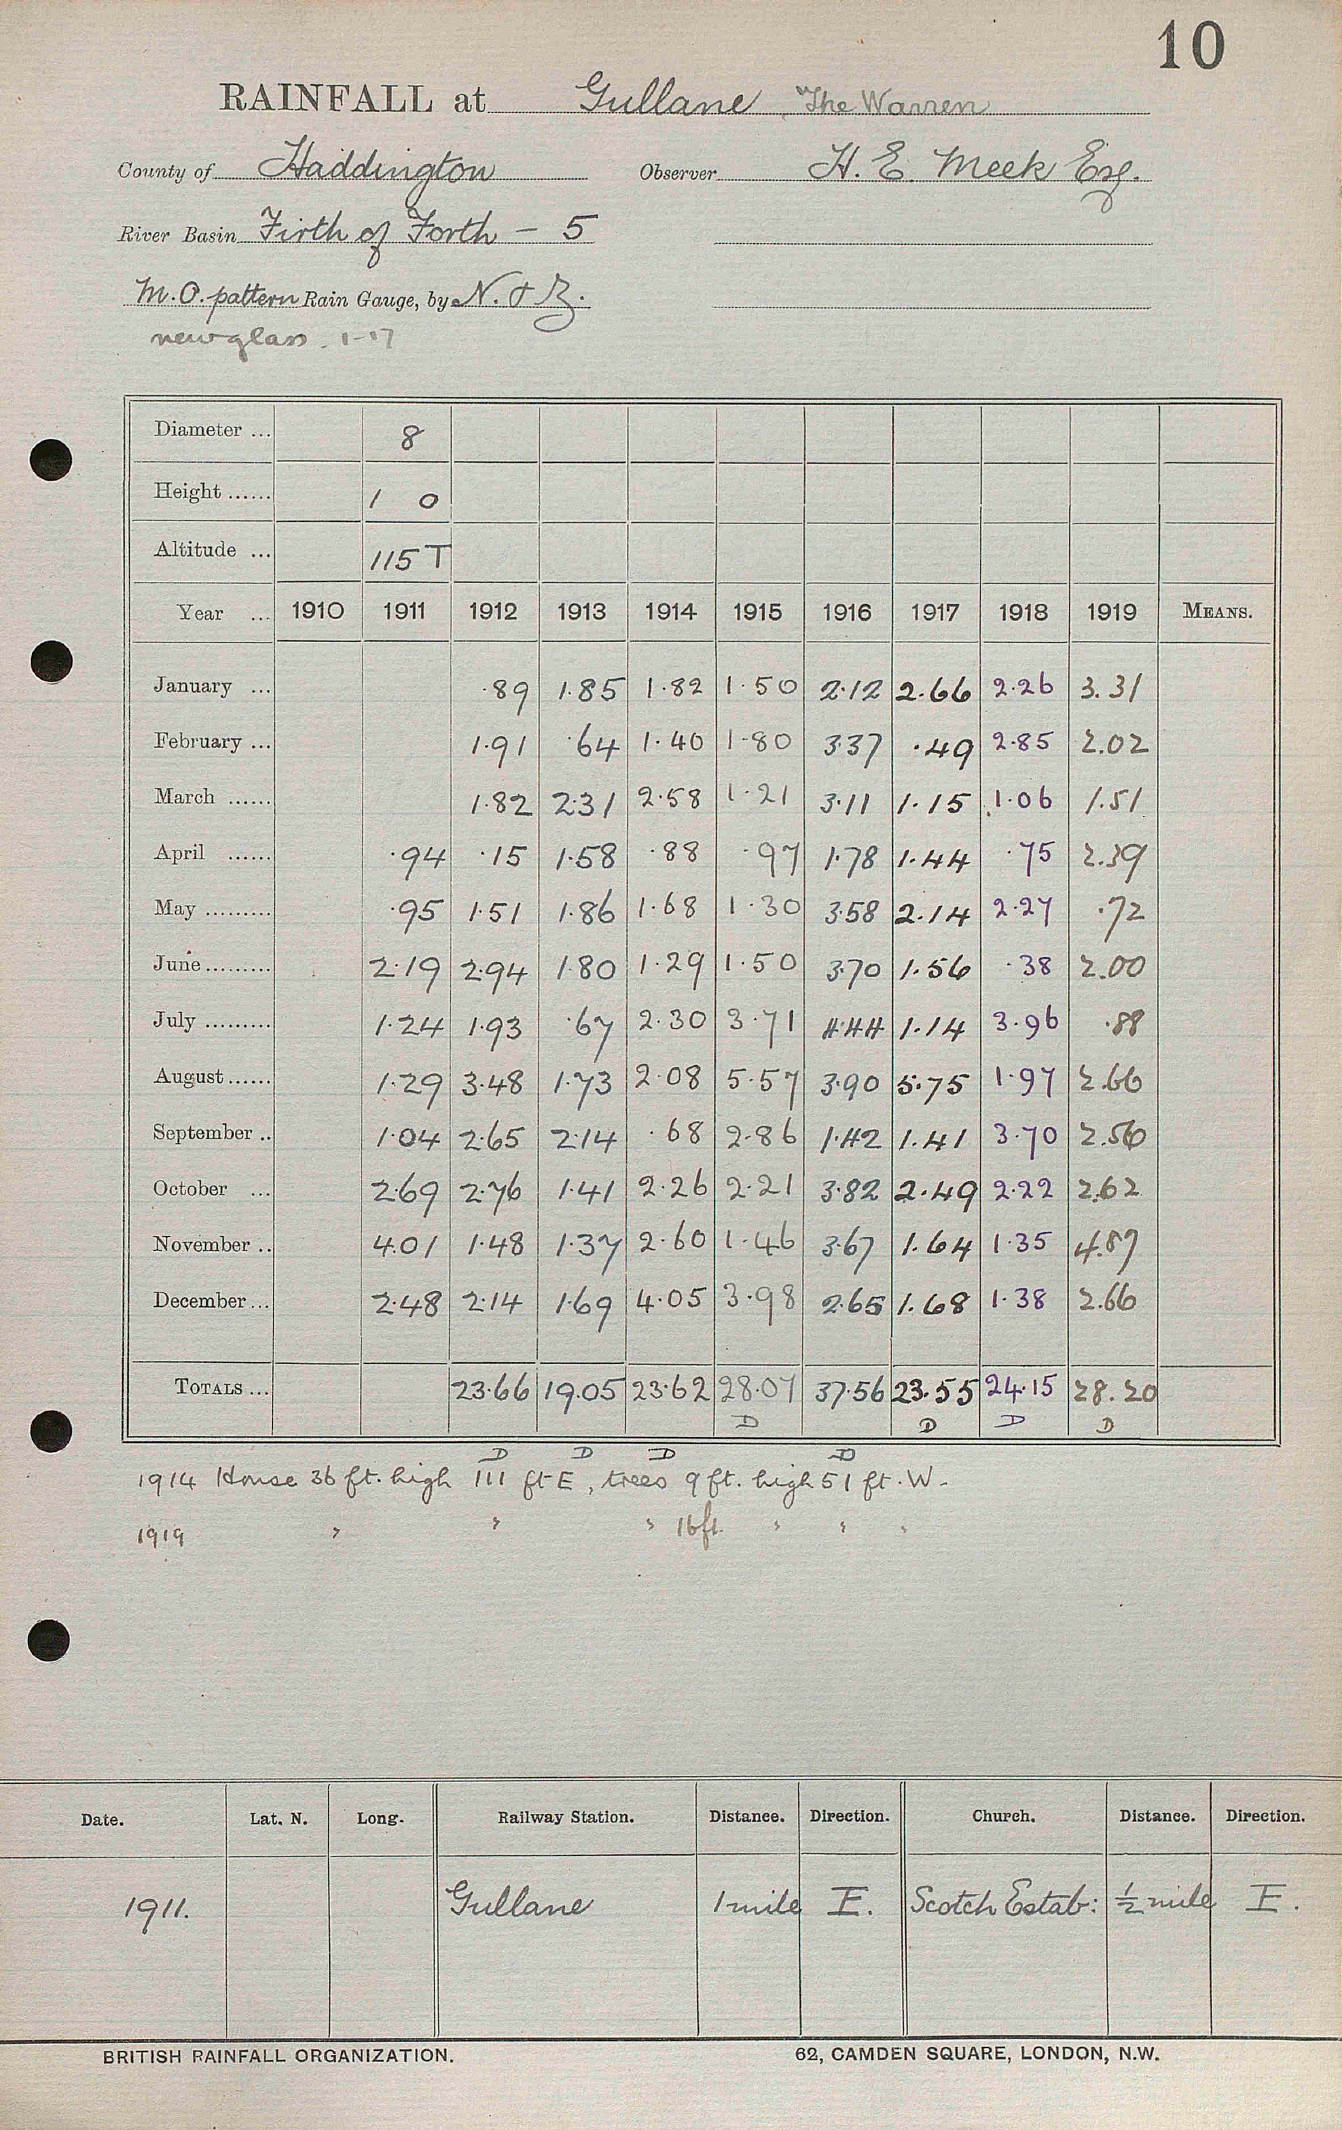 10
RAINFALL at Gullane, The Warren
County of Haddington Observer H. E. Meek Esq.
River Basin Firth of Forth – 5
M.O. pattern Rain Gauge, by N. & Z.
new glass. 1-17
Diameter ... 8
Height ...... 1 0
Altitude ... 115 T
Year ... 1910 1911 1912 1913 1914 1915 1916 1917 1918 1919 MEANS.
January ... ·89 1·85 1·82 1·50 2·12 2·66 2·26 3.31
February ... 1·91 ·64 1·40 1·80 3·37 ·49 2·85 2.02
March ...... 1·82 2·31 2·58 1·21 3·11 1·15 1·06 1.51
April ...... ·94 ·15 1·58 ·88 ·97 1·78 1·44 ·75 2.39
May ......... ·95 1·51 1·86 1·68 1·30 3·58 2·14 2·27 .72
June ......... 2·19 2·94 1·80 1·29 1·50 3·70 1·56 ·38 2.00
July ......... 1·24 1·93 ·67 2·30 3·71 4·44 1·14 3·96 .88
August ...... 1·29 3·48 1·73 2·08 5·57 3·90 5·75 1·97 2.66
September .. 1·04 2·65 2·14 ·68 2·86 1·42 1·41 3·70 2.56
October ... 2·69 2·76 1·41 2·26 2·21 3·82 2·49 2·22 2.62
November .. 4·01 1·48 1·37 2·60 1·46 3·67 1·64 1·35 4.87
December ... 2·48 2·14 1·69 4·05 3·98 2·65 1·68 1·38 2.66
TOTALS ... 23·66 19·05 23·62 28·07 37·56 23·55 24·15 28.20
D D D D
D D D D
1914 House 36 ft. high 111 ft E, trees 9 ft. high 51 ft. W.
1919 " " " 16 ft. " " "
Date. Lat. N. Long. Railway Station. Distance. Direction. Church. Distance. Direction.
1911. Gullane 1 mile E. Scotch Estab: ½ mile E.
BRITISH RAINFALL ORGANIZATION. 62, CAMDEN SQUARE, LONDON, N.W.